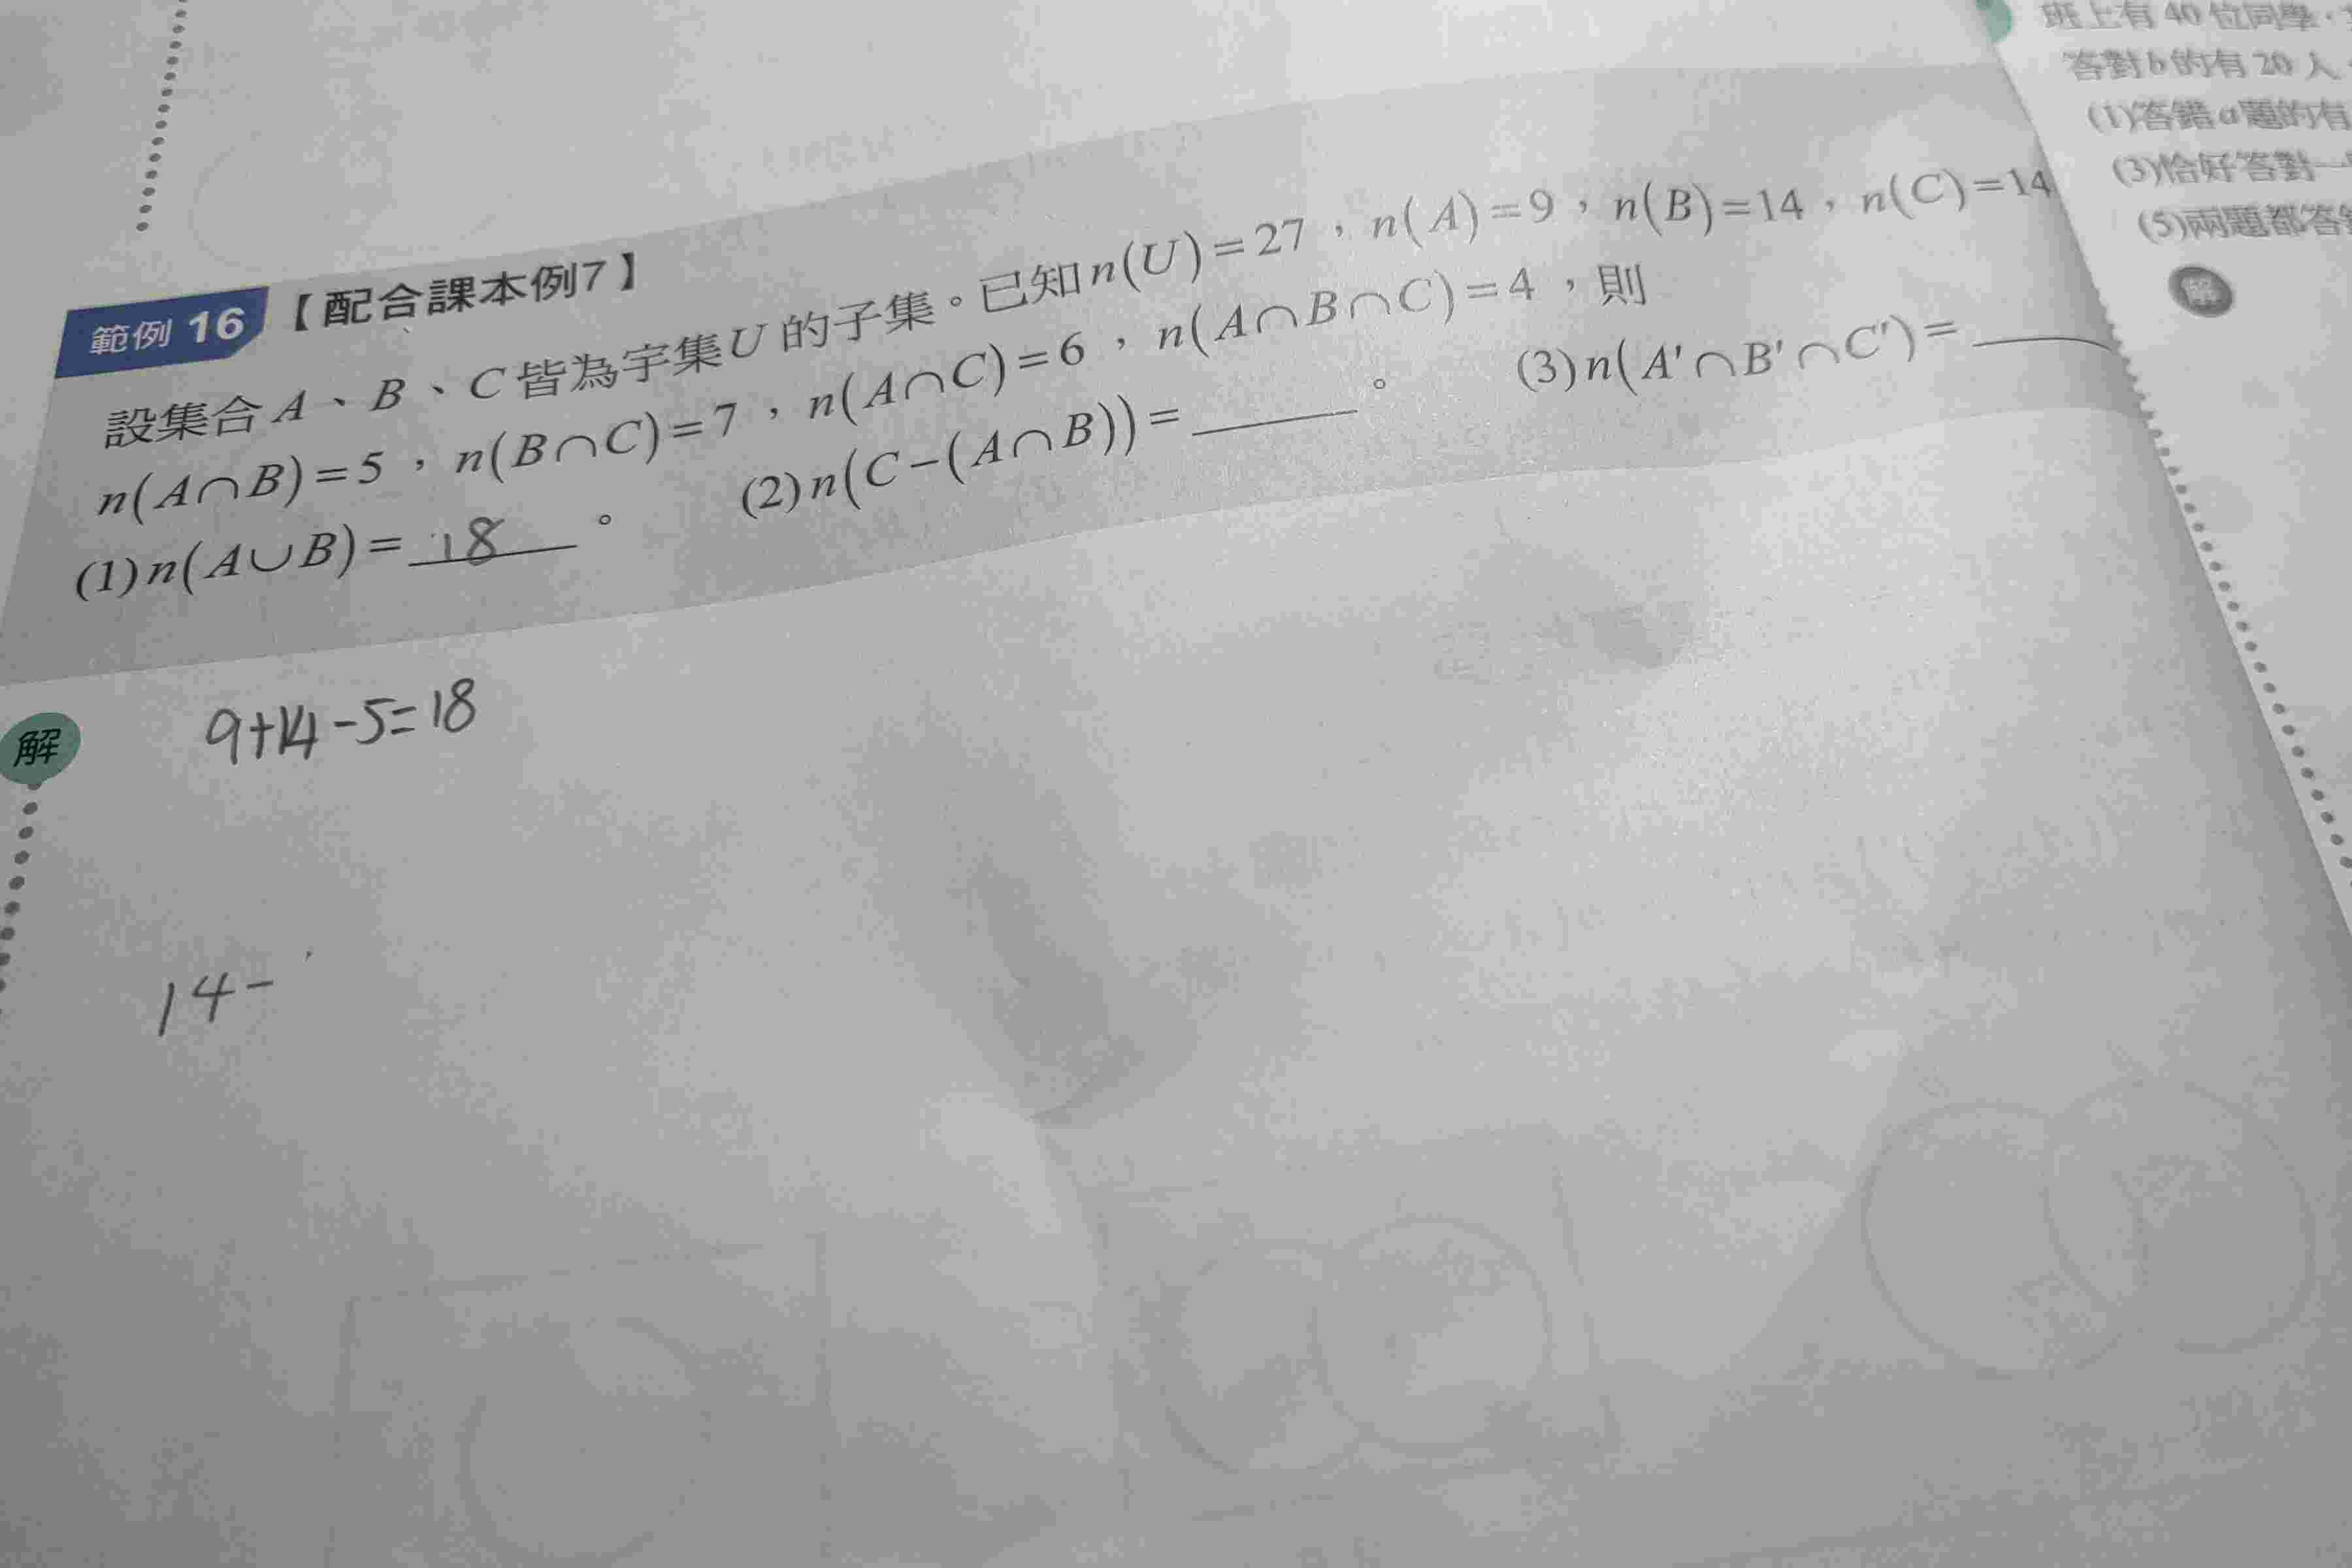 範例 16 【配合課本例7】
設集合 A、B、C 皆為宇集 U 的子集。已知 n(U)=27,n(A)=9,n(B)=14,n(C)=14
n(A∩B)=5,n(B∩C)=7,n(A∩C)=6,n(A∩B∩C)=4,則
(1)n(A∪B)= 18 。 (2)n(C-(A∩B))= 。 (3)n(A'∩B'∩C')=
解
9+14-5=18
14-
班上有 40 位同學
答對 b 的有 20 人
(1)答錯 a 題的有
(3)恰好答對一
(5)兩題都答